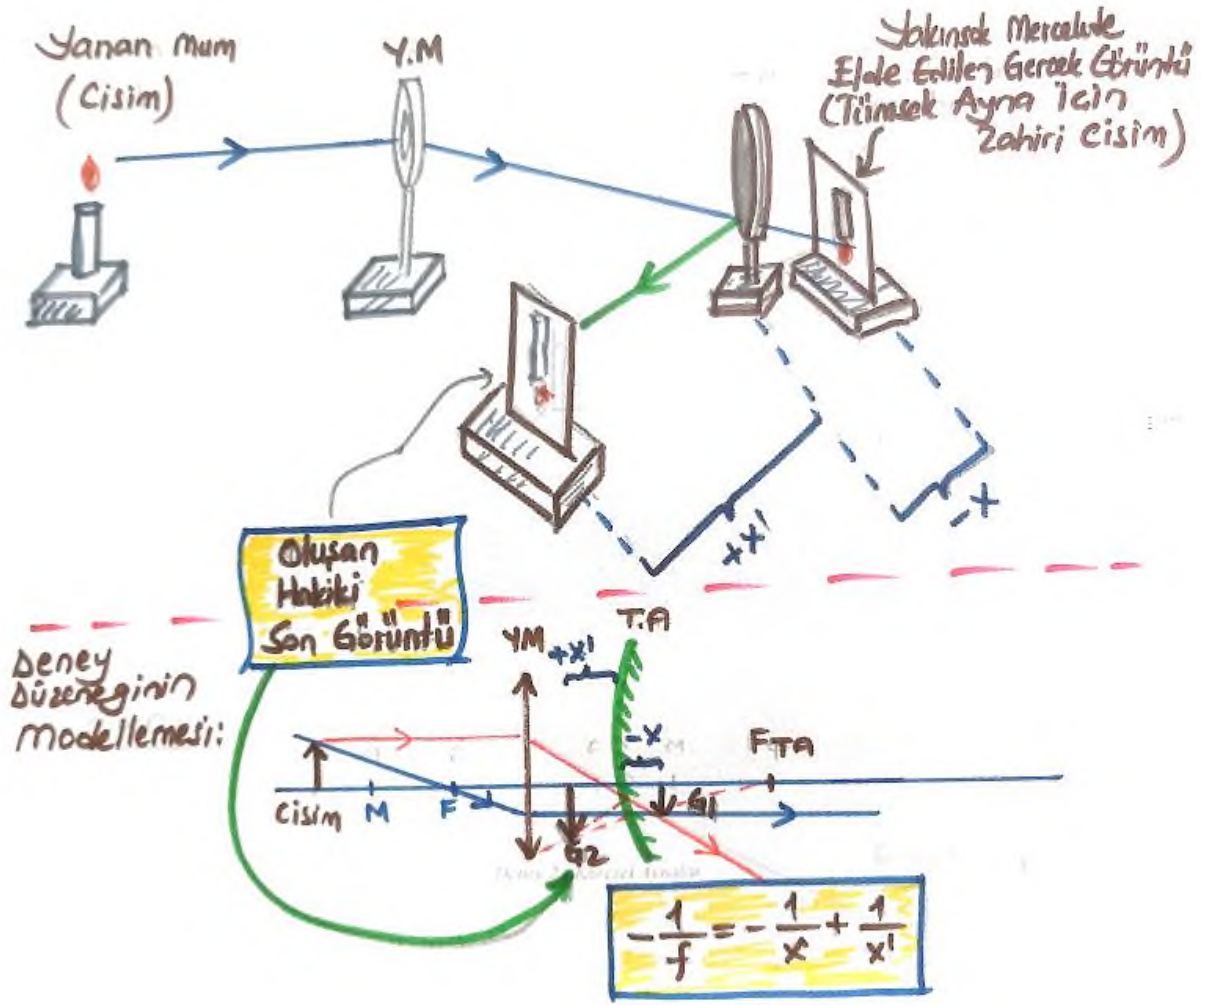 Yanan Mum
(Cisim)
Y.M
Yakınsak Mercekde
Elde Edilen Gerçek Görüntü
(Tümsek Ayna için
Zahiri Cisim)
+x'
-x
Oluşan
Hakiki
Son Görüntü
Deney
Düzeneginin
Modellemesi:
YM
+x'
T.A
-x
FTA
Cisim
M
F
G1
G2
-1/f = -1/x + 1/x'